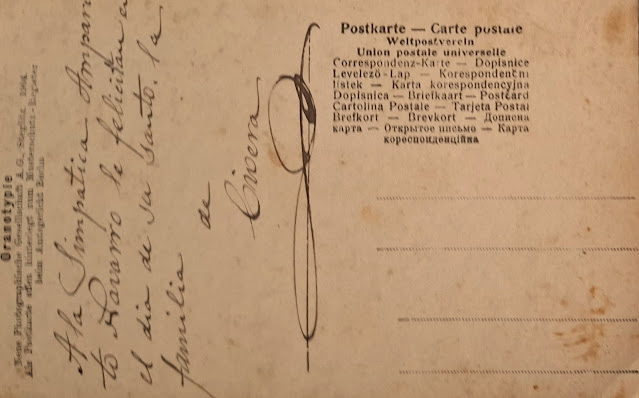 Postkarte — Carte postale
Weltpostverein
Union postale universelle
Correspondenz-Karte — Dopisnice
Levelező-Lap — Korespondenční
lístek — Karta korespondencyjna
Dopisnica — Briefkaart — Postcard
Cartolina Postale — Tarjeta Postal
Brefkort — Brevkort — Дописна
карта — Открытое письмо — Карта
кореспонденційна
Granotypie
Neue Photographische Gesellschaft A.G., Steglitz 1904
Als Postkarte offen hinterlegt zum Musterschutz-Register
beim Amtsgericht Berlin
A la Simpatica Ampari
to Navarro le felicitan en
el dia de su Santo. la
familia de
Civera